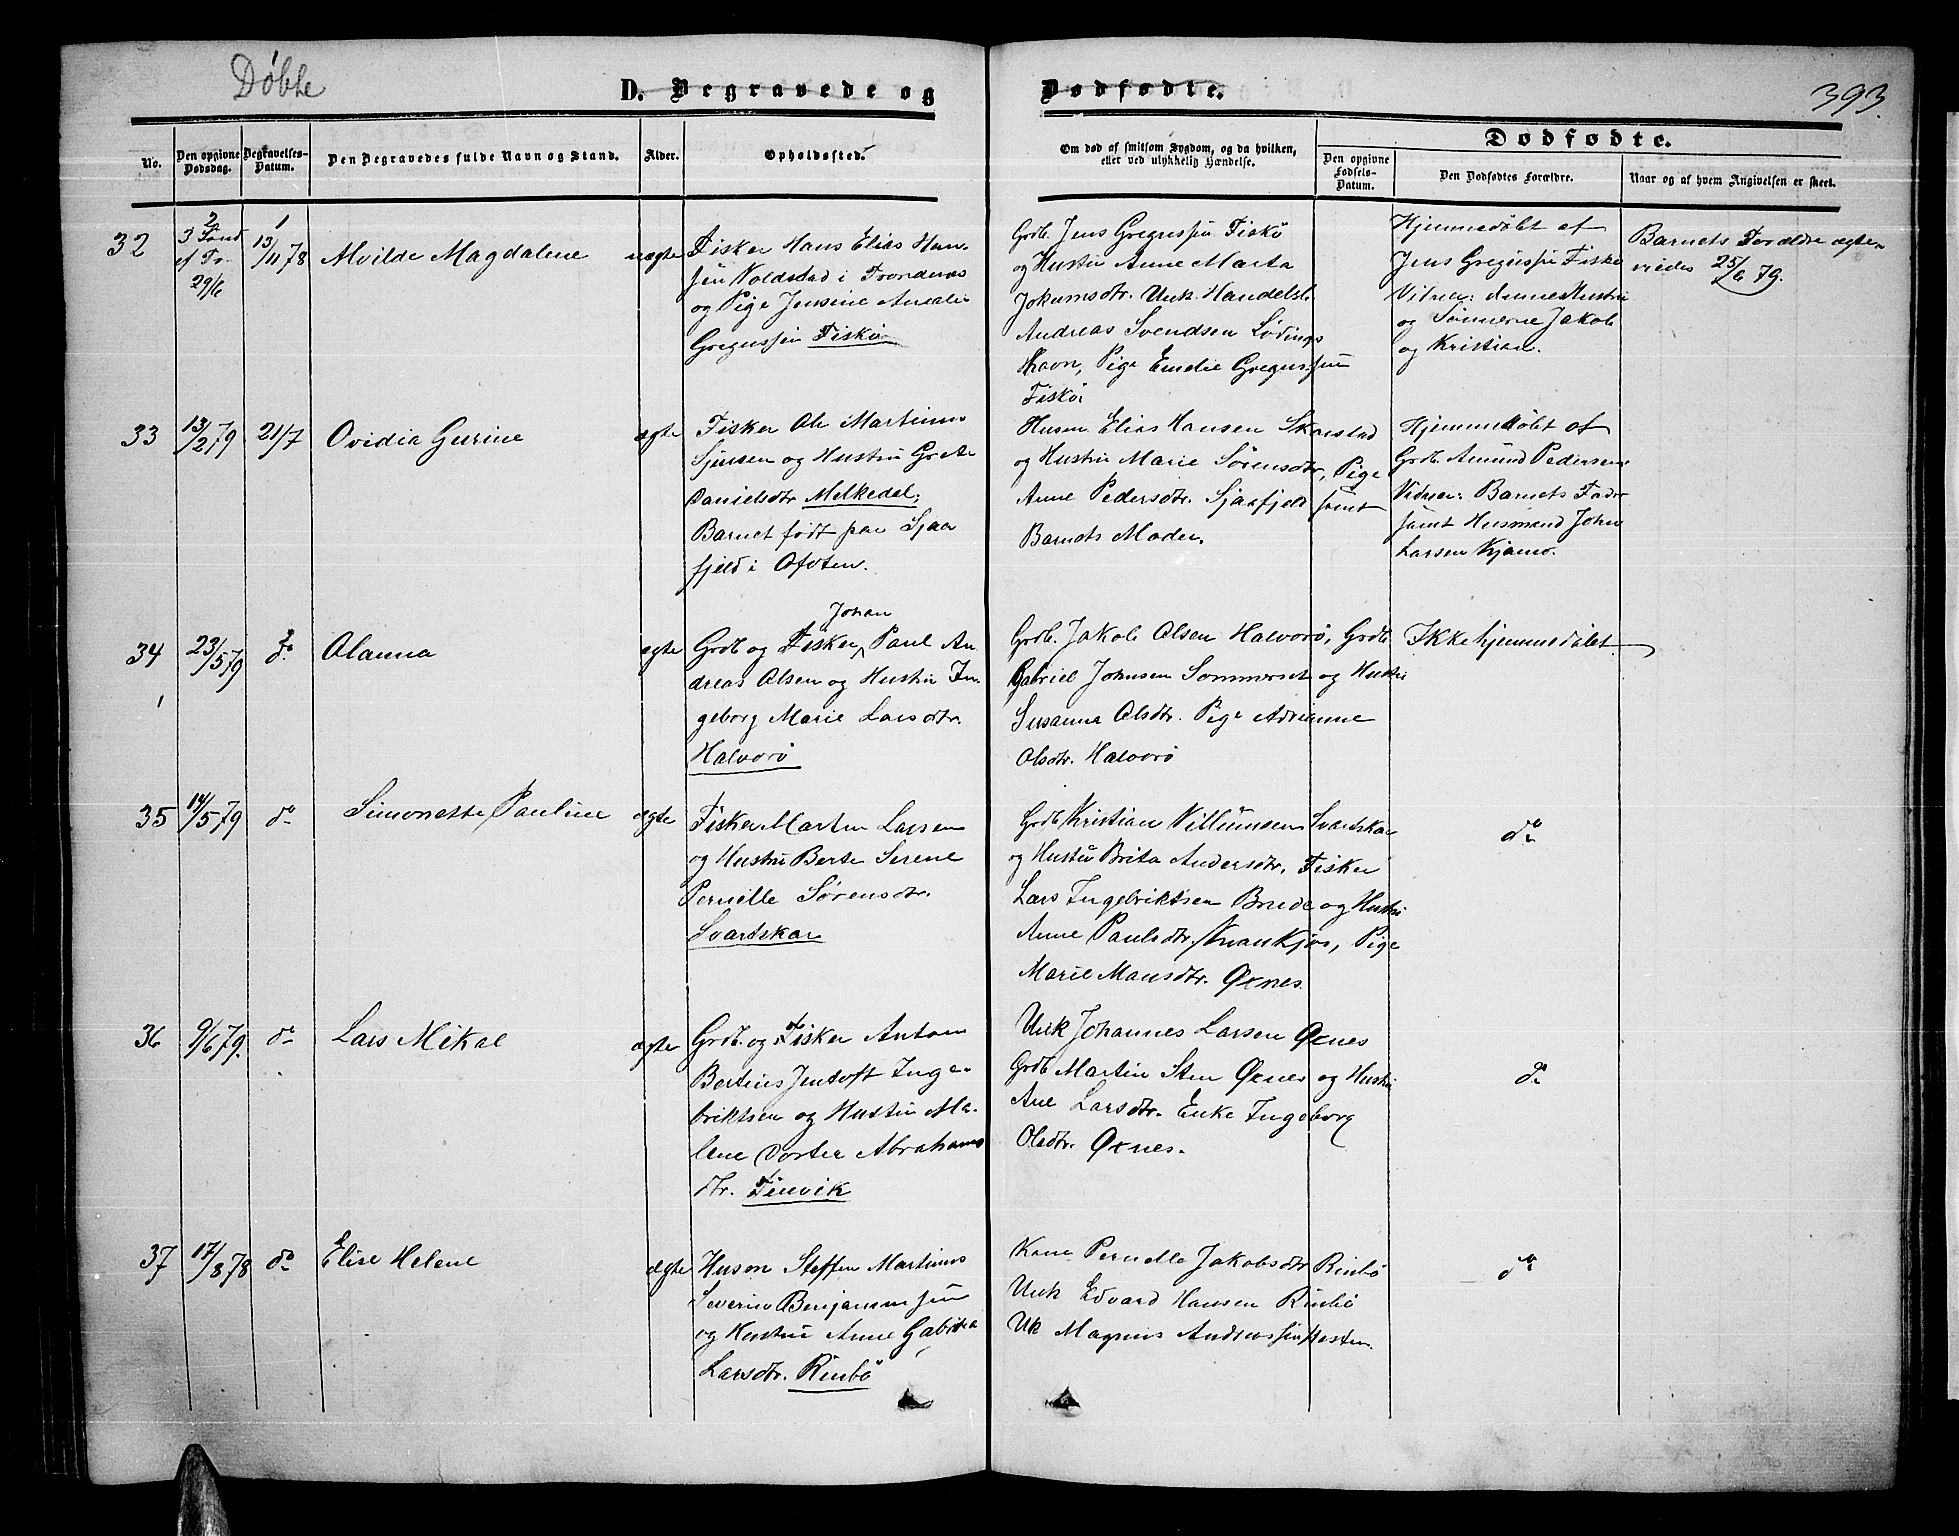 Døbte
D. Begravede og
Dødfødte.
393.
No.
Den opgivne Dødsdag.
Begravelses-Datum.
Den Begravedes fulde Navn og Stand.
Alder.
Opholdssted.
Om død af smitsom Sygdom, og da hvilken, eller ved ulykkelig Hændelse.
Dødfødte.
Den opgivne Fødsels-Datum.
Den Dødfødtes Forældre.
Naar og af hvem Angivelsen er skeet.
32
3 Sønd
ef Tr.
29/6
13/11 78
Alvilde Magdalene
uægte
Fisker Hans Elias Han-
sen Voldstad i Trondenæs
og Pige Jensine Amalie
Gregussen Fiskø
Grdb. Jens Gregussen Fiskø
og Hustru Anne Marta
Jokumsdtr. Unk. Handelsb.
Andreas Svendsen Lødings
Havn, Pige Emelie Gregussen
Fiskø
Hjemmedøbt af
Jens Gregussen Fiskø
Vidner: Anne Hustru
og Sønnerne Jakob
og Kristian.
Barnets Forældre ægte-
viedes 25/6 79.
33
13/2 79
21/7
Ovidia Gurine
ægte
Fisker Ole Martinus
Sjursen og Hustru Grete
Danielsdtr Melkedal;
Barnet født paa Sjaa
fjeld i Ofoten.
Husm Elias Hansen Skarstad
og Hustru Marie Sørensdtr, Pige
Anne Pedersdtr. Sjaafjeld samt
Barnets Moder.
Hjemmedøbt af
Grdb. Amund Pedersen
Vidner: Barnets Fader
samt Husmand John
Larsen Kjamo.
34
23/5 79
do
Olanna
ægte
Johan
Grdb og Fisker Paul An-
dreas Olsen og Hustru In-
geborg Marie Larsdtr.
Halvorø
Grdb. Jakob Olsen Halvorø, Grdb.
Gabriel Johnsen Sommerset og Hustru
Susanna Olsdtr. Pige Adrianne
Olsdtr. Halvorø
Ikke hjemmedøbt
35
14/5 79
do
Simonette Pauline
ægte
Fisker Martin Larsen
og Hustru Berte Serene
Pernille Sørensdtr.
Svartskar
Grdb Kristian Villumsen Svartskar
og Hustru Brita Andersdtr, Fisker
Lars Ingebriktsen Brude og Hustru
Anne Paulsdtr Knankjos, Pige
Marie Mansdtr. Øxnes.
do
36
9/6 79.
do
Lars Mikal
ægte
Grdb. og Fisker Anton
Bertius Jentoft Inge-
briktsen og Hustru Ma-
lene Dortea Abrahams
dtr. Finvik
Unk Johannes Larsen Øxnes
Grdb Martin Sten Øxnes og Hustru
Ane Larsdtr. Enke Ingeborg
Olsdtr. Øxnes.
do
37
17/8 78
do
Elise Helene
ægte
Husm Steffen Martinus
Severin Benjaminsen
og Hustru Anne Gabrila
Larsdtr. Rinbø
Kone Pernille Jakobsdtr Rinbø
Unk Edvard Hansen Rinbø
Uk Magnus Andreassen Hesten.
do